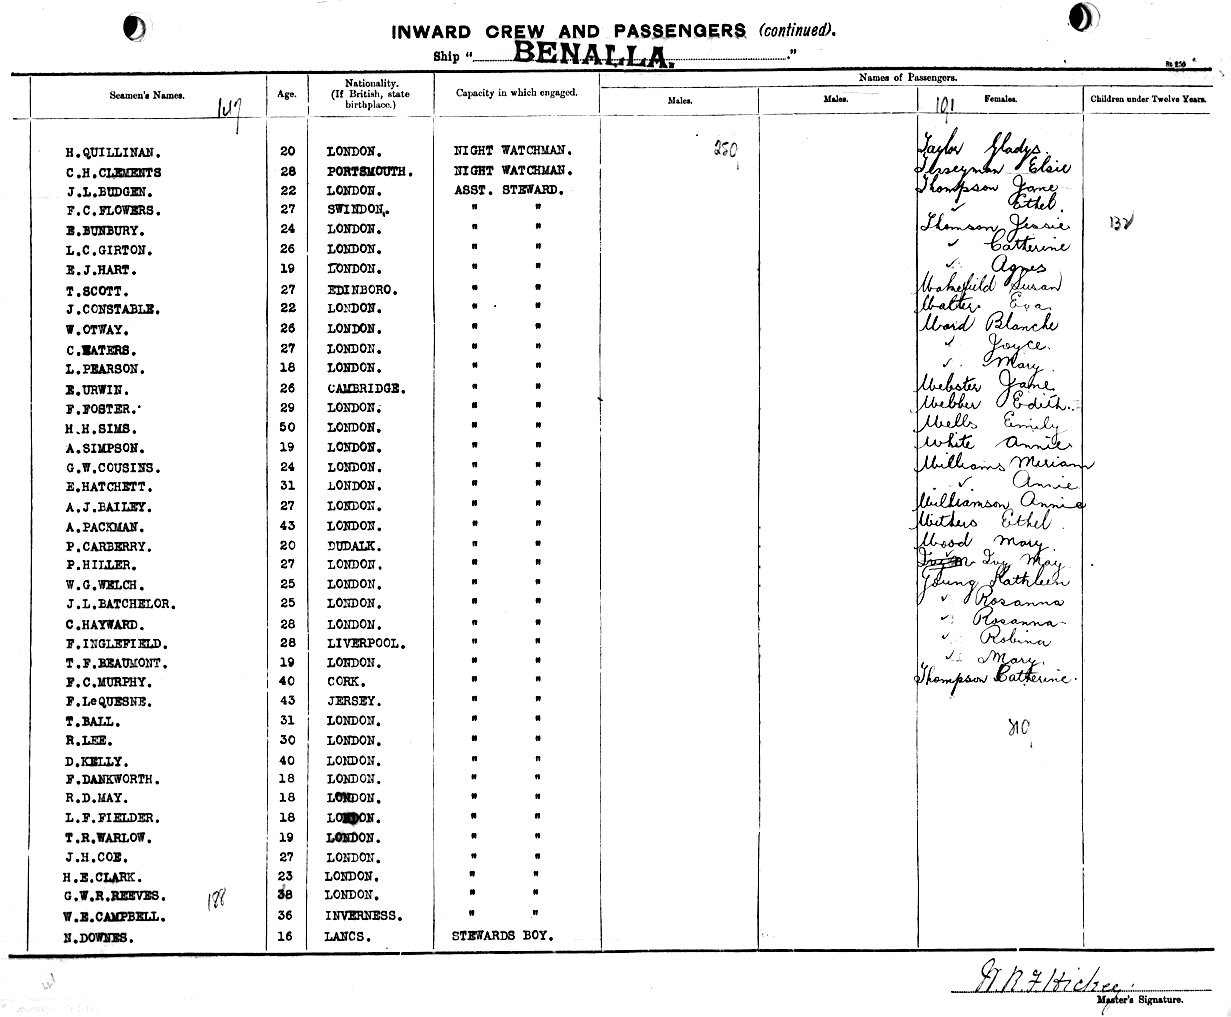 INWARD CREW AND PASSENGERS (continued).
Ship " BENALLA. "
Seamen's Names. Age. Nationality. (If British, state birthplace.) Capacity in which engaged. Names of Passengers.
Males. Males. Females. Children under Twelve Years.
147 191
H.QUILLINAN. 20 LONDON. NIGHT WATCHMAN. 250 Taylor Gladys.
C.H.CLEMENTS 28 PORTSMOUTH. NIGHT WATCHMAN. Elsie
J.L.BUDGEN. 22 LONDON. ASST. STEWARD. Thompson Jane
F.C.FLOWERS. 27 SWINDON. " " ✓ Ethel.
E.BUNBURY. 24 LONDON. " " Thomson Jessie 132
L.C.GIRTON. 26 LONDON. " " ✓ Catherine
E.J.HART. 19 LONDON. " " ✓ Agnes
T.SCOTT. 27 EDINBORO. " " Wakefield Susan
J.CONSTABLE. 22 LONDON. " " Walter Eva
W.OTWAY. 26 LONDON. " " Ward Blanche
C.EATERS. 27 LONDON. " " ✓ Joyce.
L.PEARSON. 18 LONDON. " " ✓ Mary.
E.URWIN. 26 CAMBRIDGE. " " Webster Jane
F.FOSTER. 29 LONDON. " " Webber Edith.
H.H.SIMS. 50 LONDON. " " Wells Emily
A.SIMPSON. 19 LONDON. " " White Annie
G.W.COUSINS. 24 LONDON. " " Williams Miriam
E.HATCHETT. 31 LONDON. " " ✓ Annie
A.J.BAILEY. 27 LONDON. " " Williamson Annie
A.PACKMAN. 43 LONDON. " " Withers Ethel
P.CARBERRY. 20 DUDALK. " " Wood Mary.
P.HILLER. 27 LONDON. " " Ivy May
W.G.WELCH. 25 LONDON. " " Young Kathleen
J.L.BATCHELOR. 25 LONDON. " " ✓ Rosanna
C.HAYWARD. 28 LONDON. " " ✓ Rosanna
F.INGLEFIELD. 28 LIVERPOOL. " " ✓ Robina
T.F.BEAUMONT. 19 LONDON. " " ✓ Mary.
F.C.MURPHY. 40 CORK. " " Thompson Catherine.
F.LeQUESNE. 43 JERSEY. " "
T.BALL. 31 LONDON. " "
R.LEE. 30 LONDON. " "
D.KELLY. 40 LONDON. " "
F.DANKWORTH. 18 LONDON. " "
R.D.MAY. 18 LONDON. " "
L.F.FIELDER. 18 LONDON. " "
T.R.WARLOW. 19 LONDON. " "
J.H.COE. 27 LONDON. " "
H.E.CLARK. 23 LONDON. " "
G.W.R.REEVES. 188 38 LONDON. " "
W.E.CAMPBELL. 36 INVERNESS. " "
N.DOWNES. 16 LANCS. STEWARDS BOY.
W.R.F. Hickey
Master's Signature.